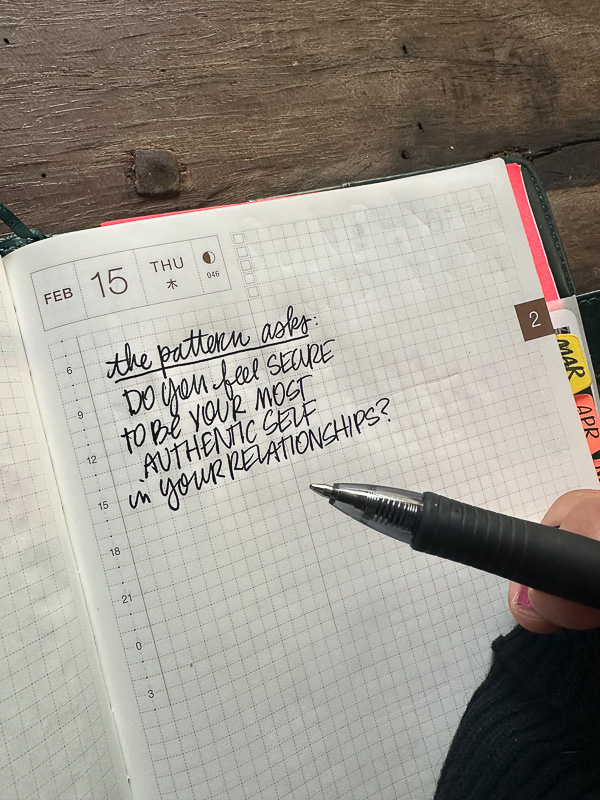 FEB 15 THU 木 046
2
the pattern asks:
DO you feel SECURE
to Be YOUR MOST
AUTHENTIC SELF
in YOUR RELATIONSHIPS?
6
9
12
15
18
21
0
3
MAR
APR